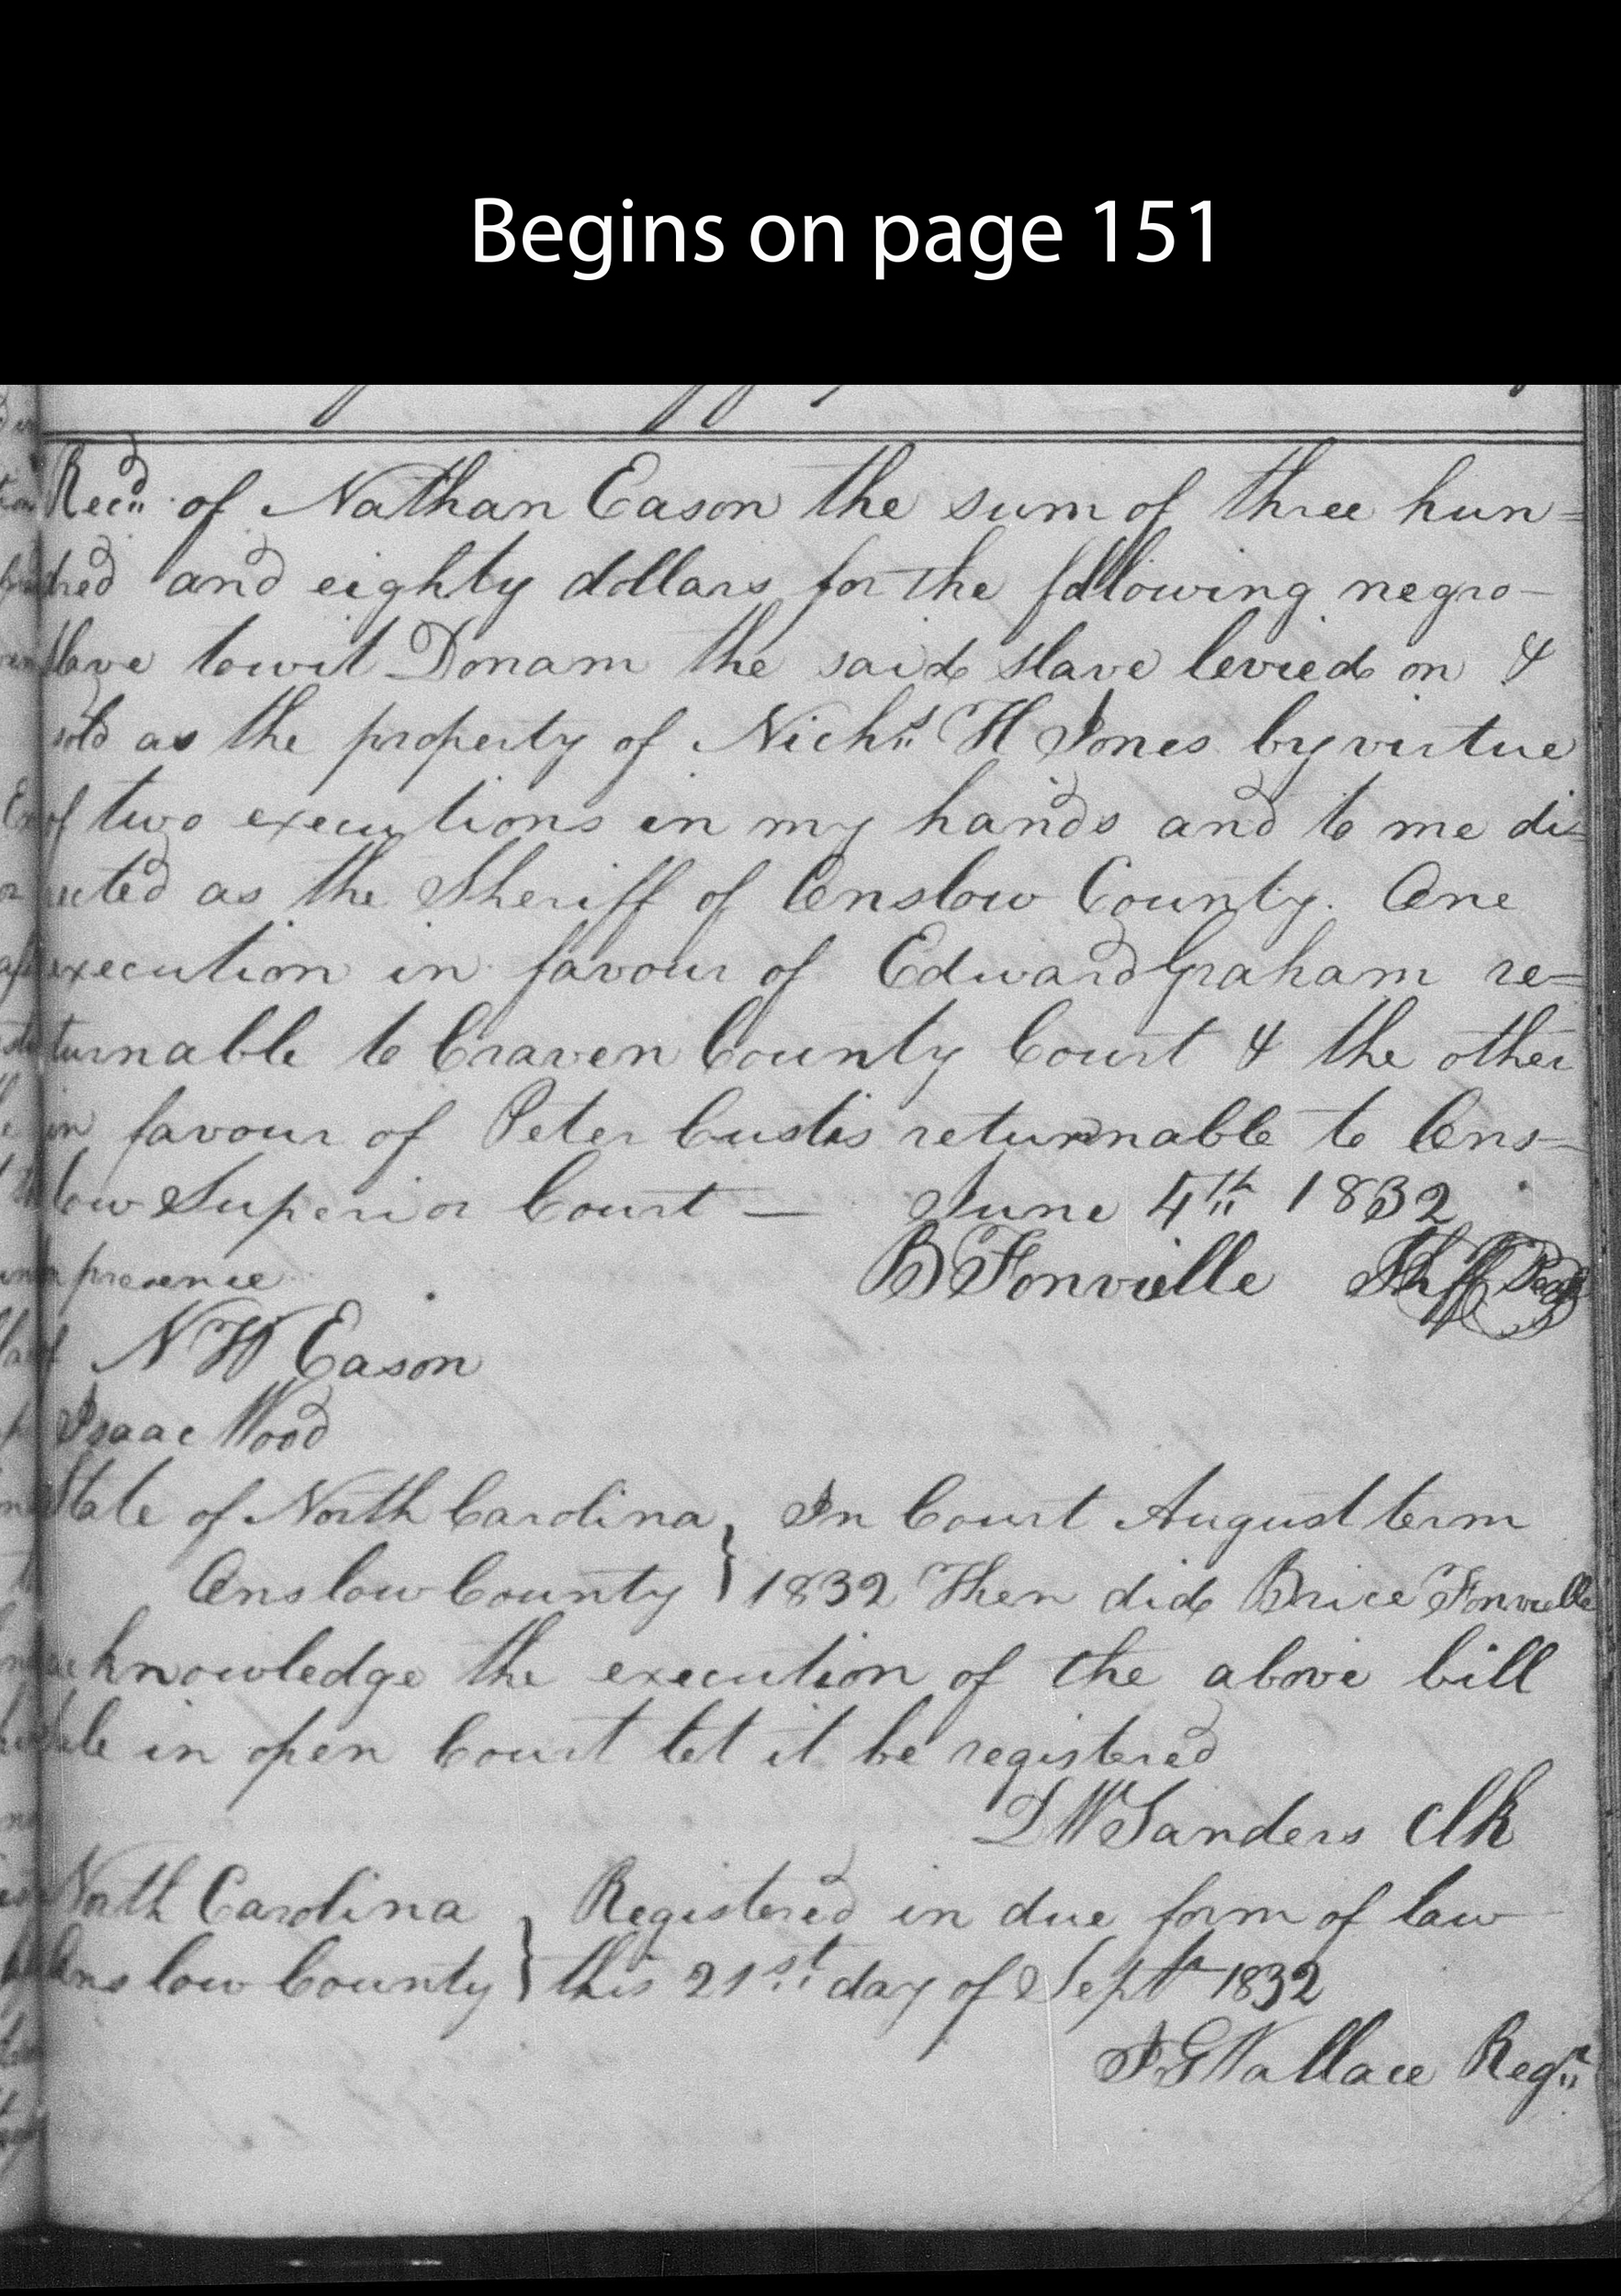 Begins on page 151
Recd. of Nathan Eason the sum of three hun=
dred and eighty dollars for the following negro
slave towit Donam the said slave levied on &
sold as the property of Nichs H Jones by virtue
of two executions in my hands and to me di=
rected as the Sheriff of Onslow County. One
execution in favour of Edward Graham re=
turnable to Craven County Court & the other
in favour of Peter Custis returnnable to Ons=
low Superior Court — June 4th 1832
in presence B Fonville Shff
N W Eason
Isaac Wood
State of North Carolina } In Court August term
Onslow County } 1832 Then did Brice Fonville
acknowledge the execution of the above bill
sale in open Court let it be registered
D W Sanders Clk
North Carolina } Registered in due form of law
Onslow County } this 21st day of Septr 1832
J G Wallace Regr